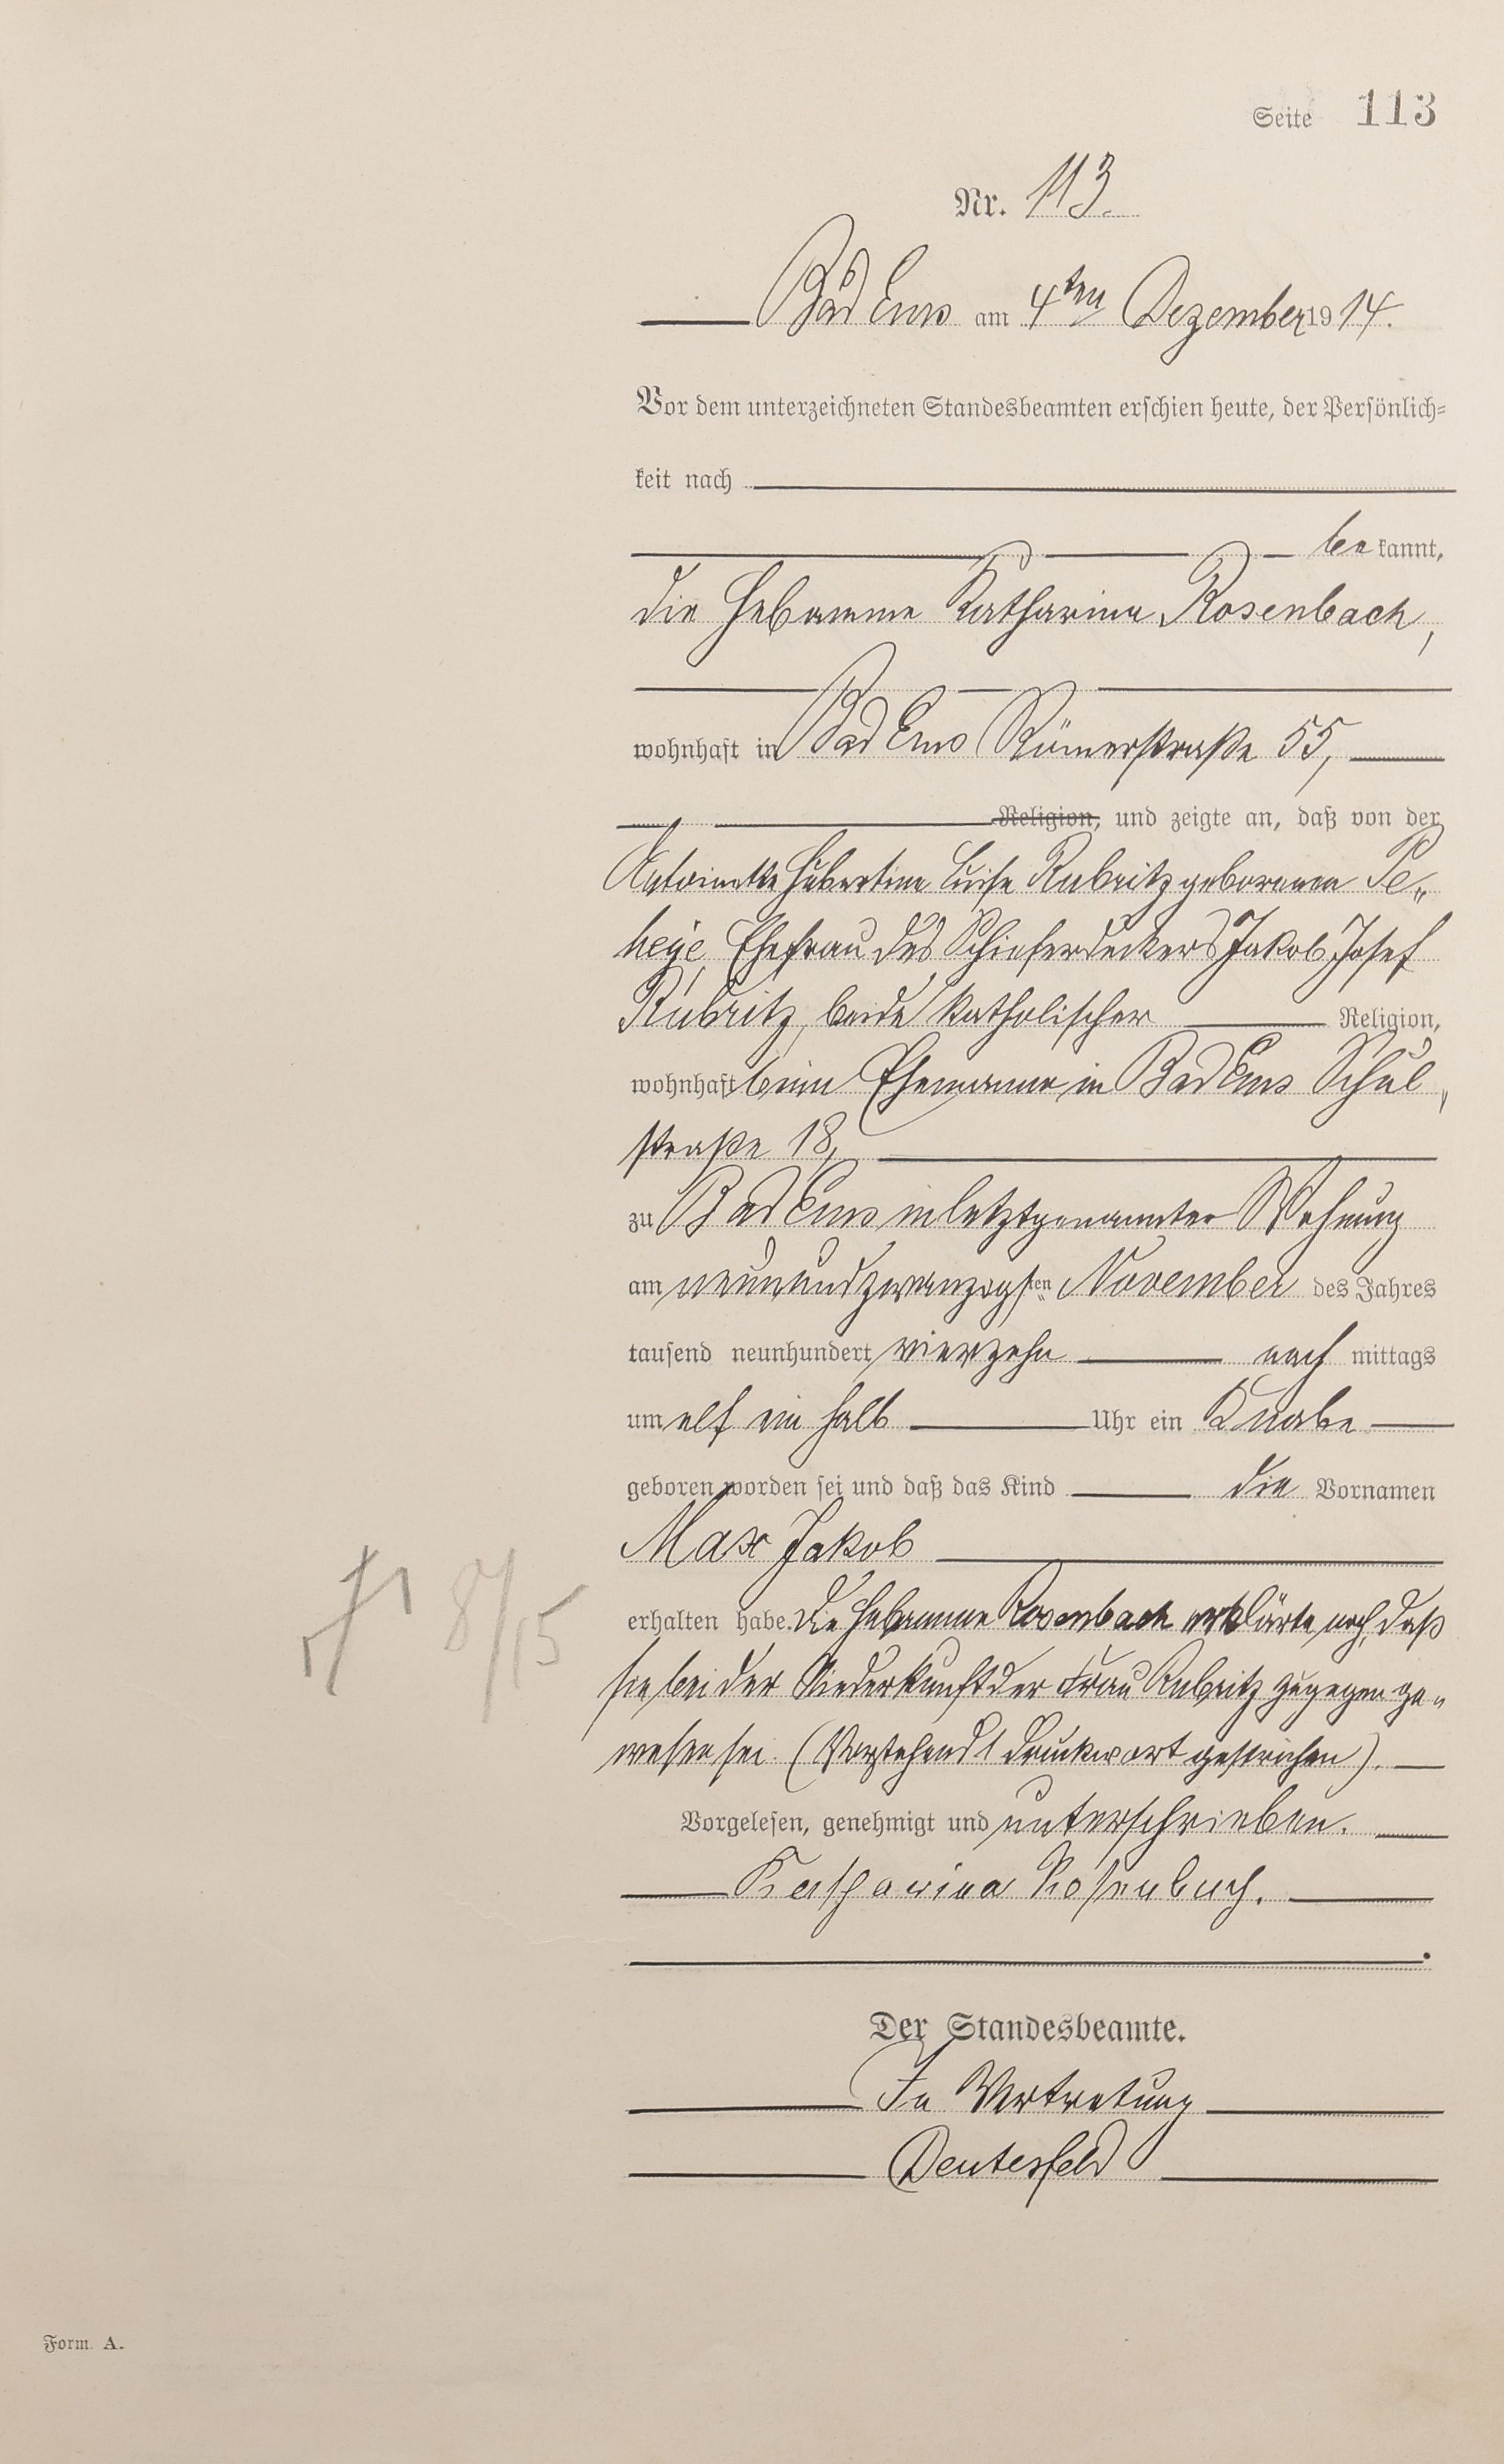 Seite 113
Nr. 113.
Bad Ems am 4ten Dezember 1914.
Vor dem unterzeichneten Standesbeamten erschien heute, der Persönlich-
keit nach
be kannt,
die Hebamme Katharina Rosenbach,
wohnhaft in Bad Ems Römerstraße 55,
Religion, und zeigte an, daß von der
Antoinette Hubertine Luise Rubritz geborenen Pe„
heije, Ehefrau des Schieferdeckers Jakob Josef
Rubritz, beide katholischer Religion,
wohnhaft beim Ehemanne in Bad Ems Schul„
straße 18,
zu Bad Ems in letztgenannter Wohnung
am neunundzwanzigsten November des Jahres
tausend neunhundert vierzehn nach mittags
um elf ein halb Uhr ein Knabe
geboren worden sei und daß das Kind die Vornamen
Max Jakob
erhalten habe. Die Hebamme Rosenbach erklärte noch, daß
sie bei der Niederkunft der Frau Rubritz zugegen ge„
wesen sei. (Vorstehend 1 Druckwort gestrichen).
Vorgelesen, genehmigt und unterschrieben.
Katharina Rosenbach.
Der Standesbeamte.
In Vertretung
Deutesfeld
8/15
Form. A.